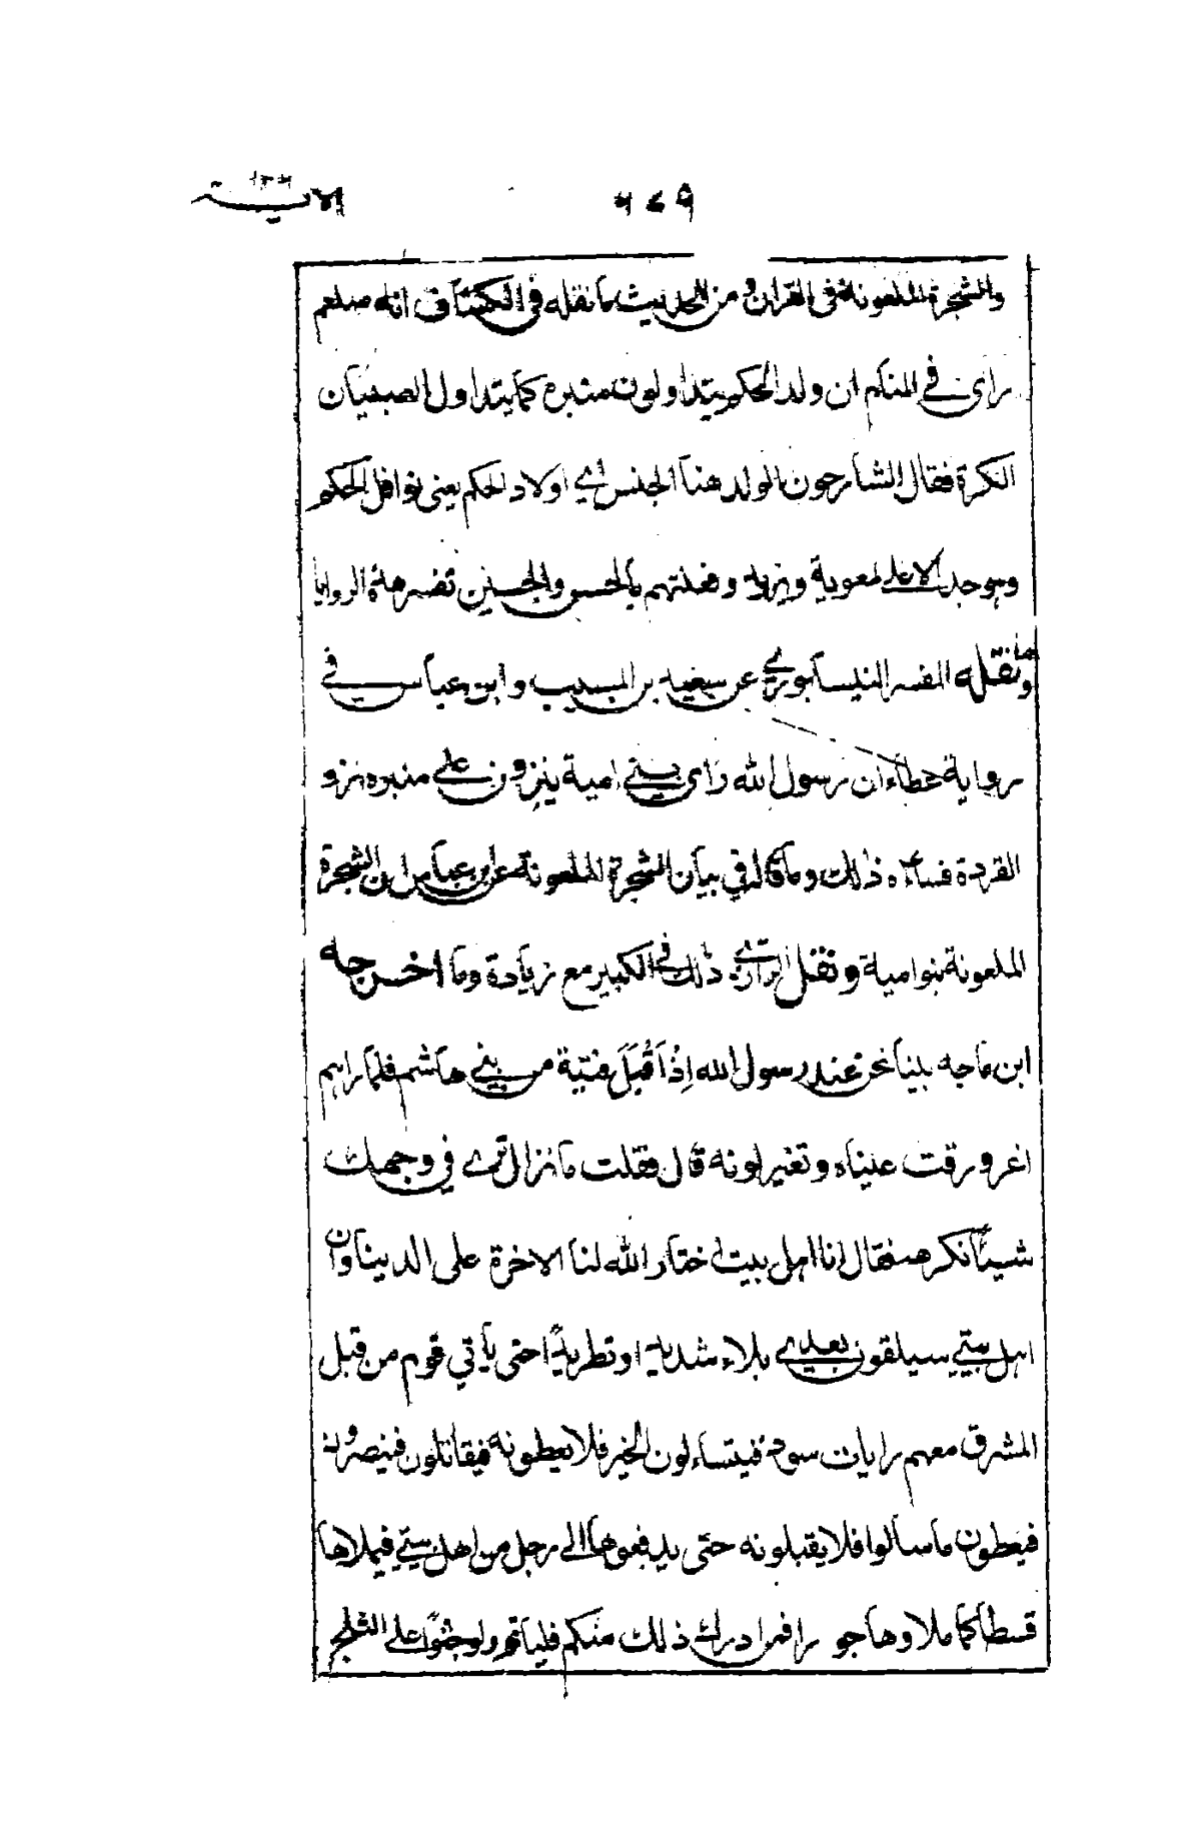 ٦٤٩ الاية ١٣٦
والشجرة الملعونة في القران و من الحديث ما نقله في الكشاف انه صلعم
رأى في المنام ان ولد الحكم يتداولون منبره كما يتداول الصبيان
الكرة فقال الشارحون بالولد هنا الجنس اي اولاد الحكم يعني نوافل الحكم
وهو جد لمعوية و يزيد و بالحسن والحسين هذه الروايا
وما نقله المفسر النيسابوري عن سعيد بن المسيب وابن عباس في
رواية عطاء ان رسول الله رأى بني امية ينزون على منبره نزو
القردة فساءه ذلك وما قاله في بيان الشجرة الملعونة عن ابن عباس ان الشجرة
الملعونة بنو امية و نقل الرازي ذلك في الكبير مع زيادة وما اخرجه
ابن ماجه بينا نحن عند رسول الله إذ أقبَلَ فتية من بني هاشم فلما راهم
اغرورقت عيناه و تغير لونه قال فقلت ما نزال نرى في وجهك
شيئا نكرهه فقال انا اهل بيت اختار الله لنا الاخرة على الدنيا وان
اهل بيتي سيلقون بعدي بلاء شديدا وتطريدا حتى يأتي قوم من قبل
المشرق معهم رايات سود فيتساءلون الخير فلا يعطونه فيقاتلون فينصرون
فيعطون ما سالوا فلا يقبلونه حتى يدفعوها الى رجل من اهل بيتي فيملاها
قسطا كما ملاوها جورا فمن ادرك ذلك منكم فلياتهم ولو حبوا على الثلج